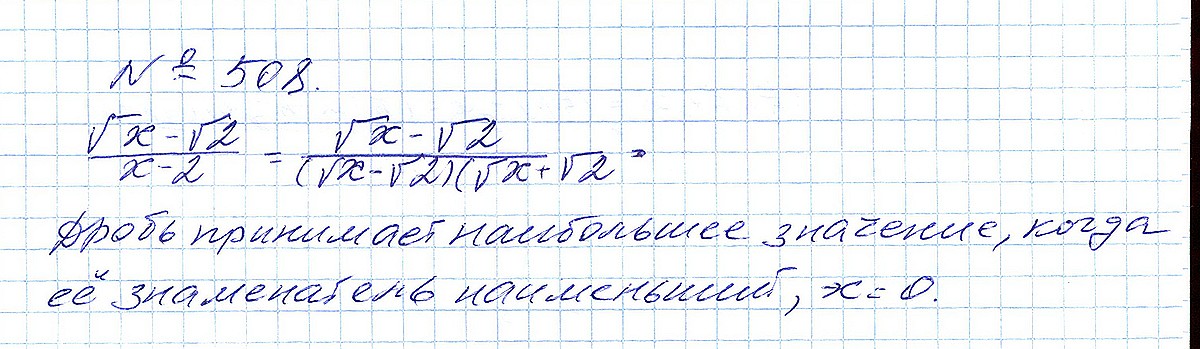 № 508.
(√x - √2)/(x - 2) = (√x - √2)/((√x - √2)(√x + √2 =
Дробь принимает наибольшее значение, когда
её знаменатель наименьший, x = 0.